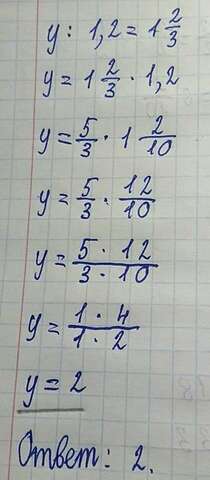 y : 1,2 = 1 2/3
y = 1 2/3 · 1,2
y = 5/3 · 1 2/10
y = 5/3 · 12/10
y = 5 · 12 / 3 · 10
y = 1 · 4 / 1 · 2
y = 2
Ответ: 2.